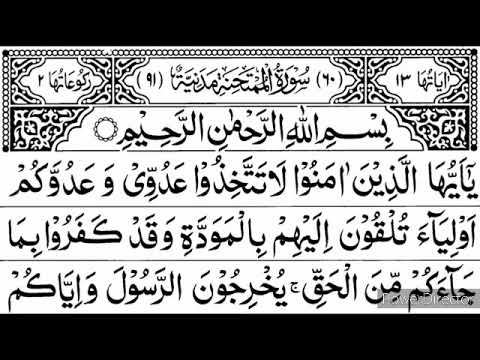 اٰيَاتُهَا ١٣ (٦٠) سُوْرَةُ الْمُمْتَحِنَةِ مَدَنِيَّةٌ (٩١) رُكُوْعَاتُهَا ٢
بِسْمِ اللّٰهِ الرَّحْمٰنِ الرَّحِيْمِ
يٰۤاَيُّهَا الَّذِيْنَ اٰمَنُوْا لَا تَتَّخِذُوْا عَدُوِّيْ وَ عَدُوَّكُمْ
اَوْلِيَآءَ تُلْقُوْنَ اِلَيْهِمْ بِالْمَوَدَّةِ وَ قَدْ كَفَرُوْا بِمَا
جَآءَكُمْ مِّنَ الْحَقِّ ۚ يُخْرِجُوْنَ الرَّسُوْلَ وَ اِيَّاكُمْ
PowerDirector